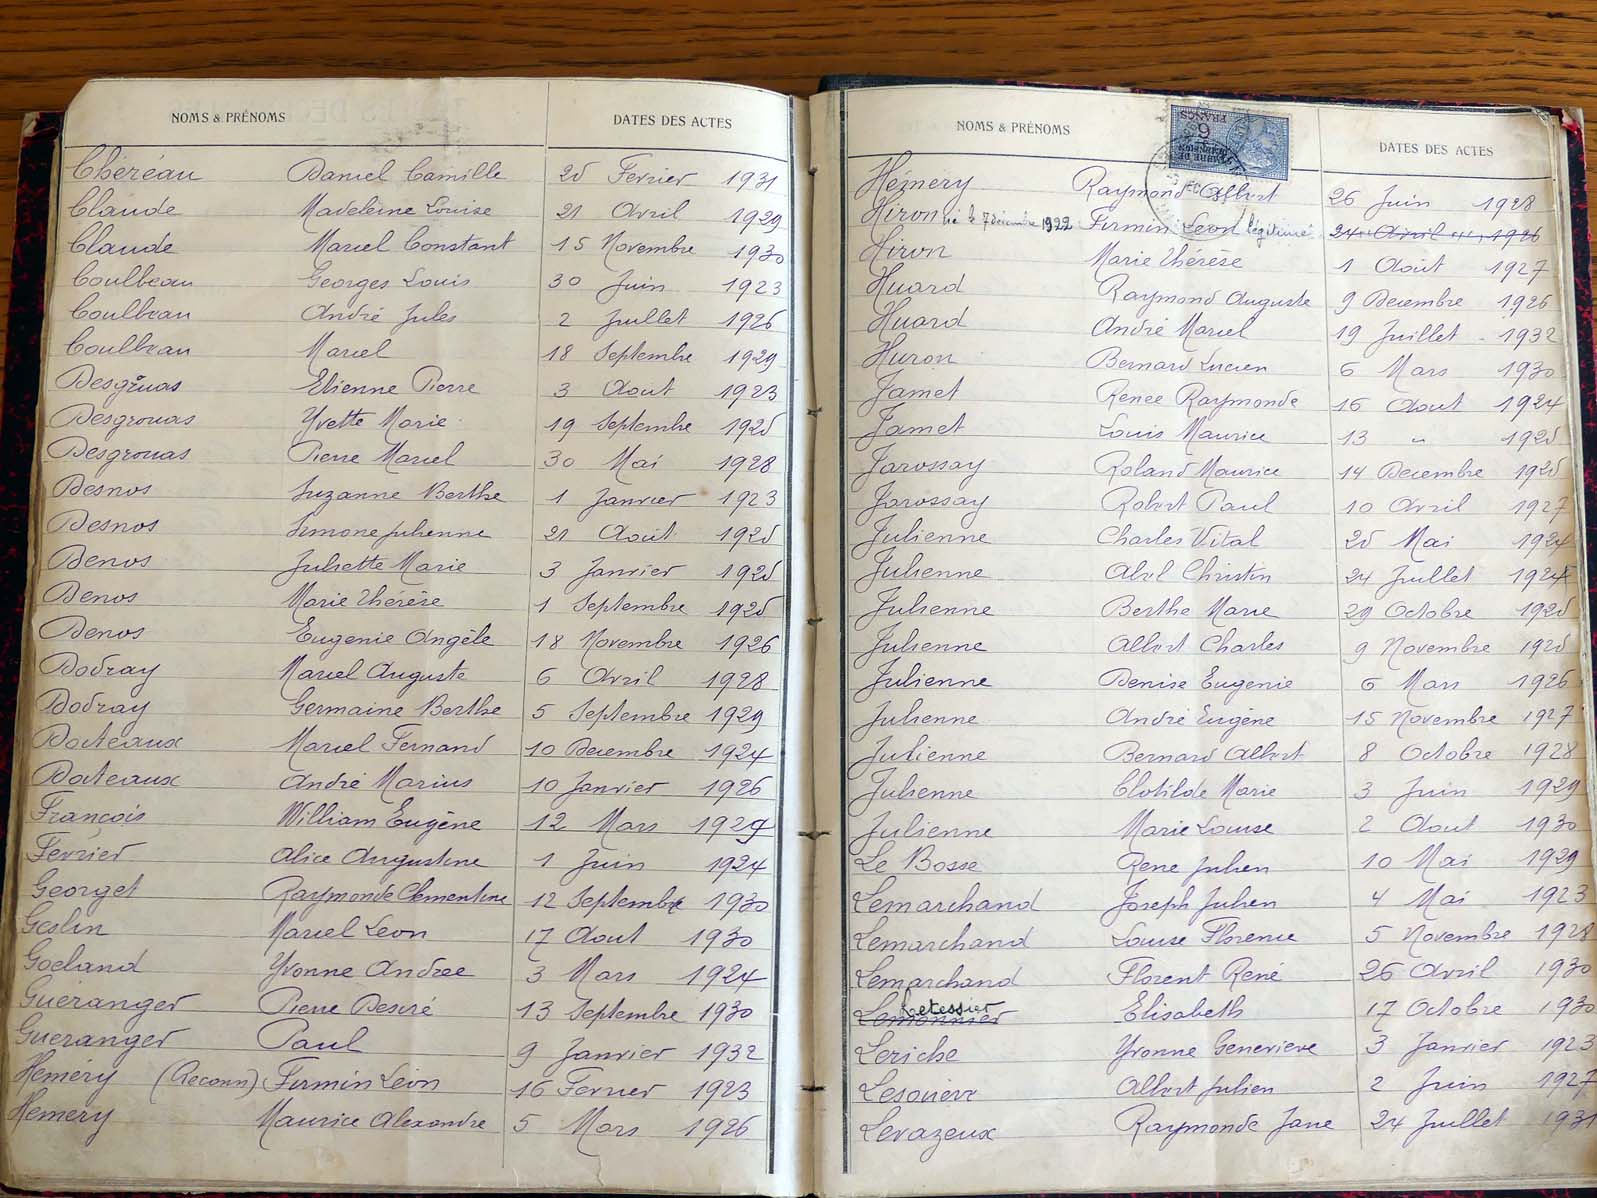 NOMS & PRÉNOMS DATES DES ACTES
Chéreau Daniel Camille 25 Fevrier 1931
Claude Madeleine Louise 21 Avril 1929
Claude Marcel Constant 15 Novembre 1930
Coulbeau Georges Louis 30 Juin 1923
Coulbeau André Jules 2 Juillet 1926
Coulbeau Marcel 18 Septembre 1929
Desgrouas Etienne Pierre 3 Aout 1923
Desgrouas Yvette Marie 19 Septembre 1925
Desgrouas Pierre Marcel 30 Mai 1928
Desnos Suzanne Berthe 1 Janvier 1923
Desnos Simone Julienne 21 Août 1925
Denos Juliette Marie 3 Janvier 1925
Denos Marie Thérèse 1 Septembre 1925
Denos Eugenie Angèle 18 Novembre 1926
Dodray Marcel Auguste 6 Avril 1928
Dodray Germaine Berthe 5 Septembre 1929
Doiteaux Marcel Fernand 10 Decembre 1924
Doiteaux André Marius 10 Janvier 1926
François William Eugène 12 Mars 1929
Février Alice Augustine 1 Juin 1924
Georget Raymonde Clementine 12 Septembre 1930
Geslin Marcel Leon 17 Aout 1930
Goeland Yvonne Andree 3 Mars 1924
Guéranger Pierre Desiré 13 Septembre 1930
Gueranger Paul 9 Janvier 1932
Heméry (Reconn) Firmin Léon 16 Fevrier 1923
Hemery Maurice Alexandre 5 Mars 1926
NOMS & PRÉNOMS DATES DES ACTES
6 FRANCS
Raymond Albert 26 Juin 1928
Hiron né le 7 décembre 1922 Firmin Leon légitimé 24 Avril 1926
Hiron Marie Thérèse 1 Août 1927
Huard Raymond Auguste 9 Decembre 1926
Huard André Marcel 19 Juillet 1932
Huron Bernard Lucien 6 Mars 1930
Jamet Renee Raymonde 16 Aout 1924
Jamet Louis Maurice 13 " 1925
Jarossay Roland Maurice 14 Decembre 1925
Jarossay Robert Paul 10 Avril 1927
Julienne Charles Vital 25 Mai 1924
Julienne Abel Christin 24 Juillet 1924
Julienne Berthe Marie 29 Octobre 1925
Julienne Albert Charles 9 Novembre 1925
Julienne Denise Eugenie 6 Mars 1926
Julienne André Eugène 15 Novembre 1927
Julienne Bernard Albert 8 Octobre 1928
Julienne Clotilde Marie 3 Juin 1929
Julienne Marie Louise 2 Aout 1930
Le Bosse Rene Julien 10 Mai 1929
Lemarchand Joseph Julien 4 Mai 1923
Lemarchand Louise Florence 5 Novembre 1928
Lemarchand Florent René 26 Avril 1930
Letessier
Lemonnier Elisabeth 17 Octobre 1930
Leriche Yvonne Genevieve 3 Janvier 1923
Albert Julien 2 Juin 1927
Levazeux Raymonde Jane 24 Juillet 1931